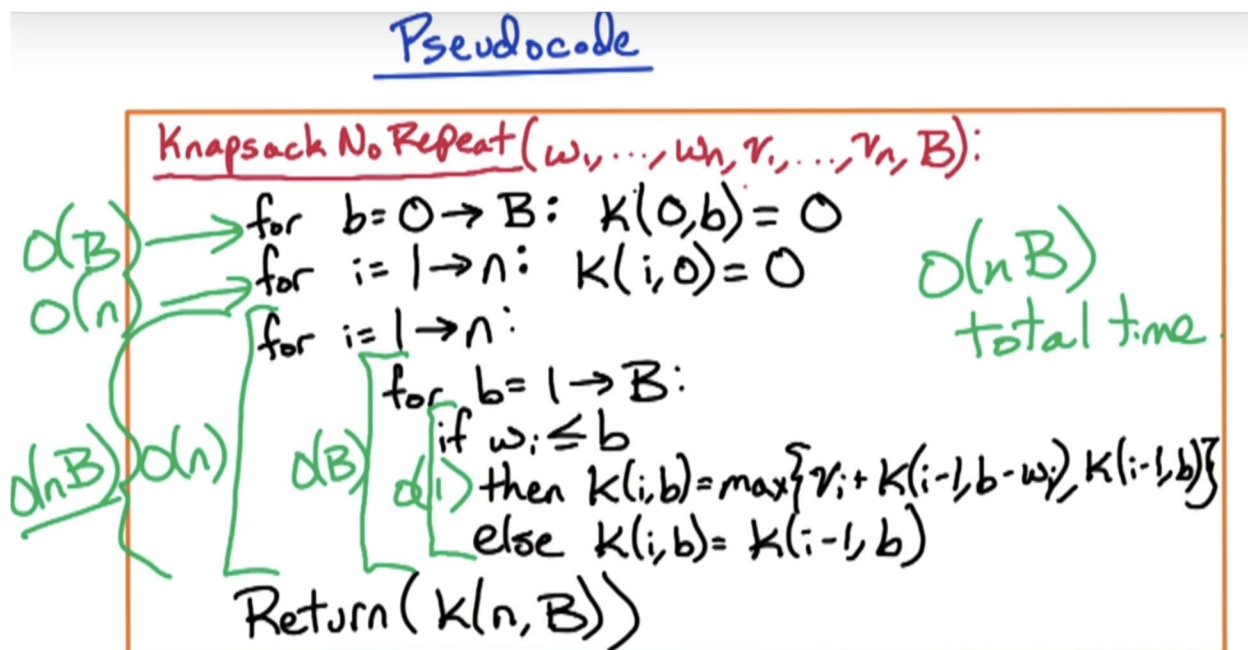 Pseudocode
Knapsack No Repeat(w₁,...,wₙ,v₁,...,vₙ,B):
O(B) for b=0→B: K(0,b)=0
O(n) for i=1→n: K(i,0)=0
O(nB)
total time
for i=1→n:
for b=1→B:
if wᵢ≤b
O(nB) O(n) O(B) O(1) then K(i,b)=max{vᵢ+K(i-1,b-wᵢ),K(i-1,b)}
else K(i,b)=K(i-1,b)
Return(K(n,B))